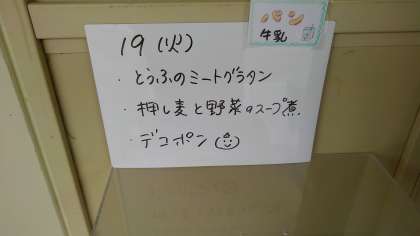 パン
牛乳
19 (火)
・とうふのミートグラタン
・押し麦と野菜のスープ煮
・デコポン